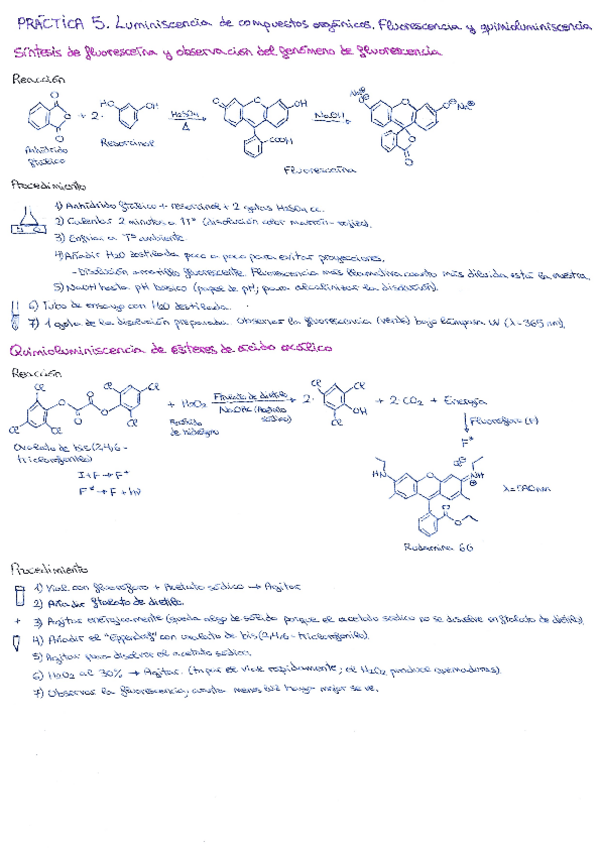 PRÁCTICA 5. Luminiscencia de compuestos orgánicos. Fluorescencia y quimioluminiscencia
Síntesis de fluoresceína y observación del fenómeno de fluorescencia
Reacción
+ 2·
H2SO4
Δ
NaOH
Anhídrido
ftálico
Resorcinol
COOH
Fluoresceína
Procedimiento
1) Anhídrido ftálico + resorcinol + 2 gotas H2SO4 cc.
2) Calentar 2 minutos a ↑Tª (disolución color marrón-rojizo).
3) Enfriar a Tª ambiente.
4) Añadir H2O destilada poco a poco para evitar proyecciones.
- Disolución amarilla fluorescente. Fluorescencia más llamativa cuanto más diluida está la muestra.
5) NaOH hasta pH básico (papel de pH; para alcalinizar la disolución).
6) Tubo de ensayo con H2O destilada.
7) 1 gota de la disolución preparada. Observar la fluorescencia (verde) bajo lámpara UV (λ=365 nm).
Quimioluminiscencia de ésteres de ácido oxálico
Reacción
+ H2O2
Ftalato de dietilo
NaOAc (Acetato sódico)
+ 2·
+ 2·CO2 + Energía
Fluoróforo (F)
F*
Oxalato de bis(2,4,6-
triclorofenilo)
I + F → F*
F* → F + hν
λ=540nm
Rodamina 6G
Procedimiento
1) Vial con fluoróforo + Acetato sódico → Agitar
2) Añadir ftalato de dietilo.
3) Agitar enérgicamente (queda algo de sólido porque el acetato sódico no se disuelve en ftalato de dietilo).
4) Añadir el "Eppendorf" con oxalato de bis(2,4,6-triclorofenilo).
5) Agitar para disolver el acetato sódico.
6) H2O2 al 30% → Agitar. (Tapar el vial rápidamente; el H2O2 produce quemaduras).
7) Observar la fluorescencia, cuanta menos luz haya mejor se ve.